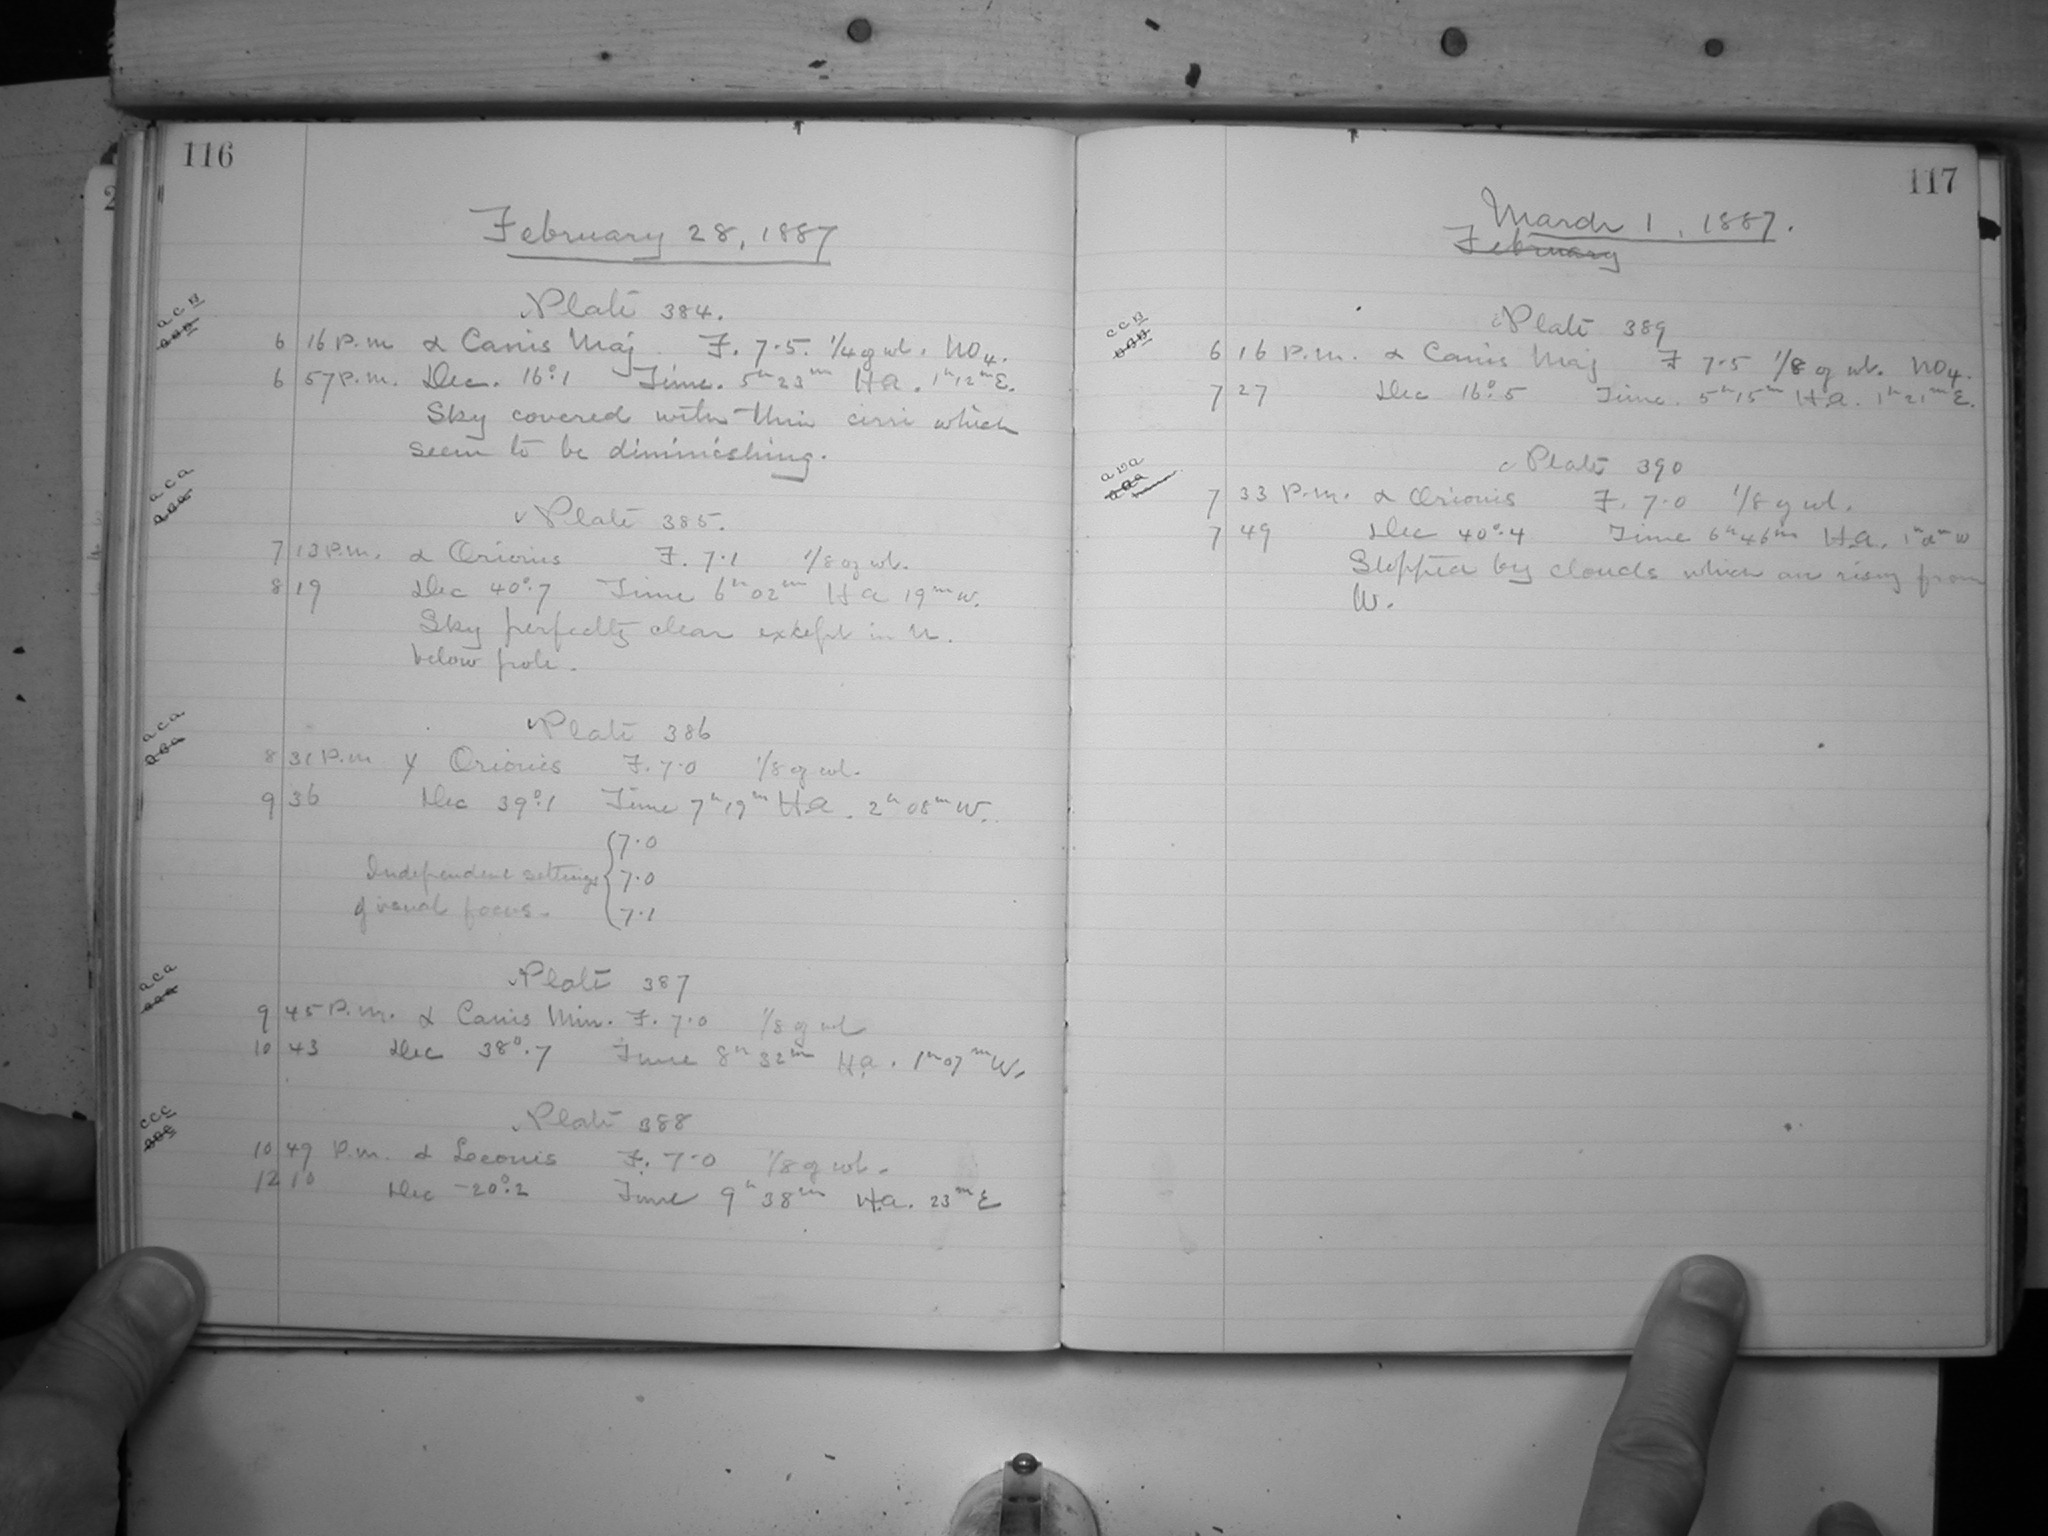 116
February 28, 1887
a c B
Plate 384.
6 16 P.m. α Canis Maj. F. 7.5. 1/4 g wt. NO4.
6 57 P.m. Dec. 16°.1 Time. 5h 23m H a. 1h 12m E.
Sky covered with thin cirri which
seem to be diminishing.
a c a
Plate 385.
7 13 P.m. α Orionis F. 7.1 1/8 g wt.
8 19 Dec 40°.7 Time 6h 02m H a 19m W.
Sky perfectly clear except in N.
below pole.
a c a
Plate 386
8 31 P.m γ Orionis F. 7.0 1/8 g wt.
9 36 Dec 39°.1 Time 7h 19m H a. 2h 08m W.
7.0
Independent settings 7.0
of visual focus. 7.1
a c a
Plate 387
9 45 P.m. α Canis Min. F. 7.0 1/8 g wt
10 43 Dec 38°.7 Time 8h 32m H a. 1h 07m W.
c c c
Plate 388
10 49 P.m. α Leonis F. 7.0 1/8 g wt.
12 10 Dec -20°.2 Time 9h 38m H a. 23m E
117
March 1, 1887.
February
c c B
Plate 389
6 16 P.m. α Canis Maj F 7.5 1/8 g wt. NO4.
7 27 Dec 16°.5 Time. 5h 15m H a. 1h 21m E.
Plate 390
7 33 P.m. α Orionis F. 7.0 1/8 g wt.
7 49 Dec 40°.4 Time 6h 46m H a. W
Stopped by clouds which are rising from
W.